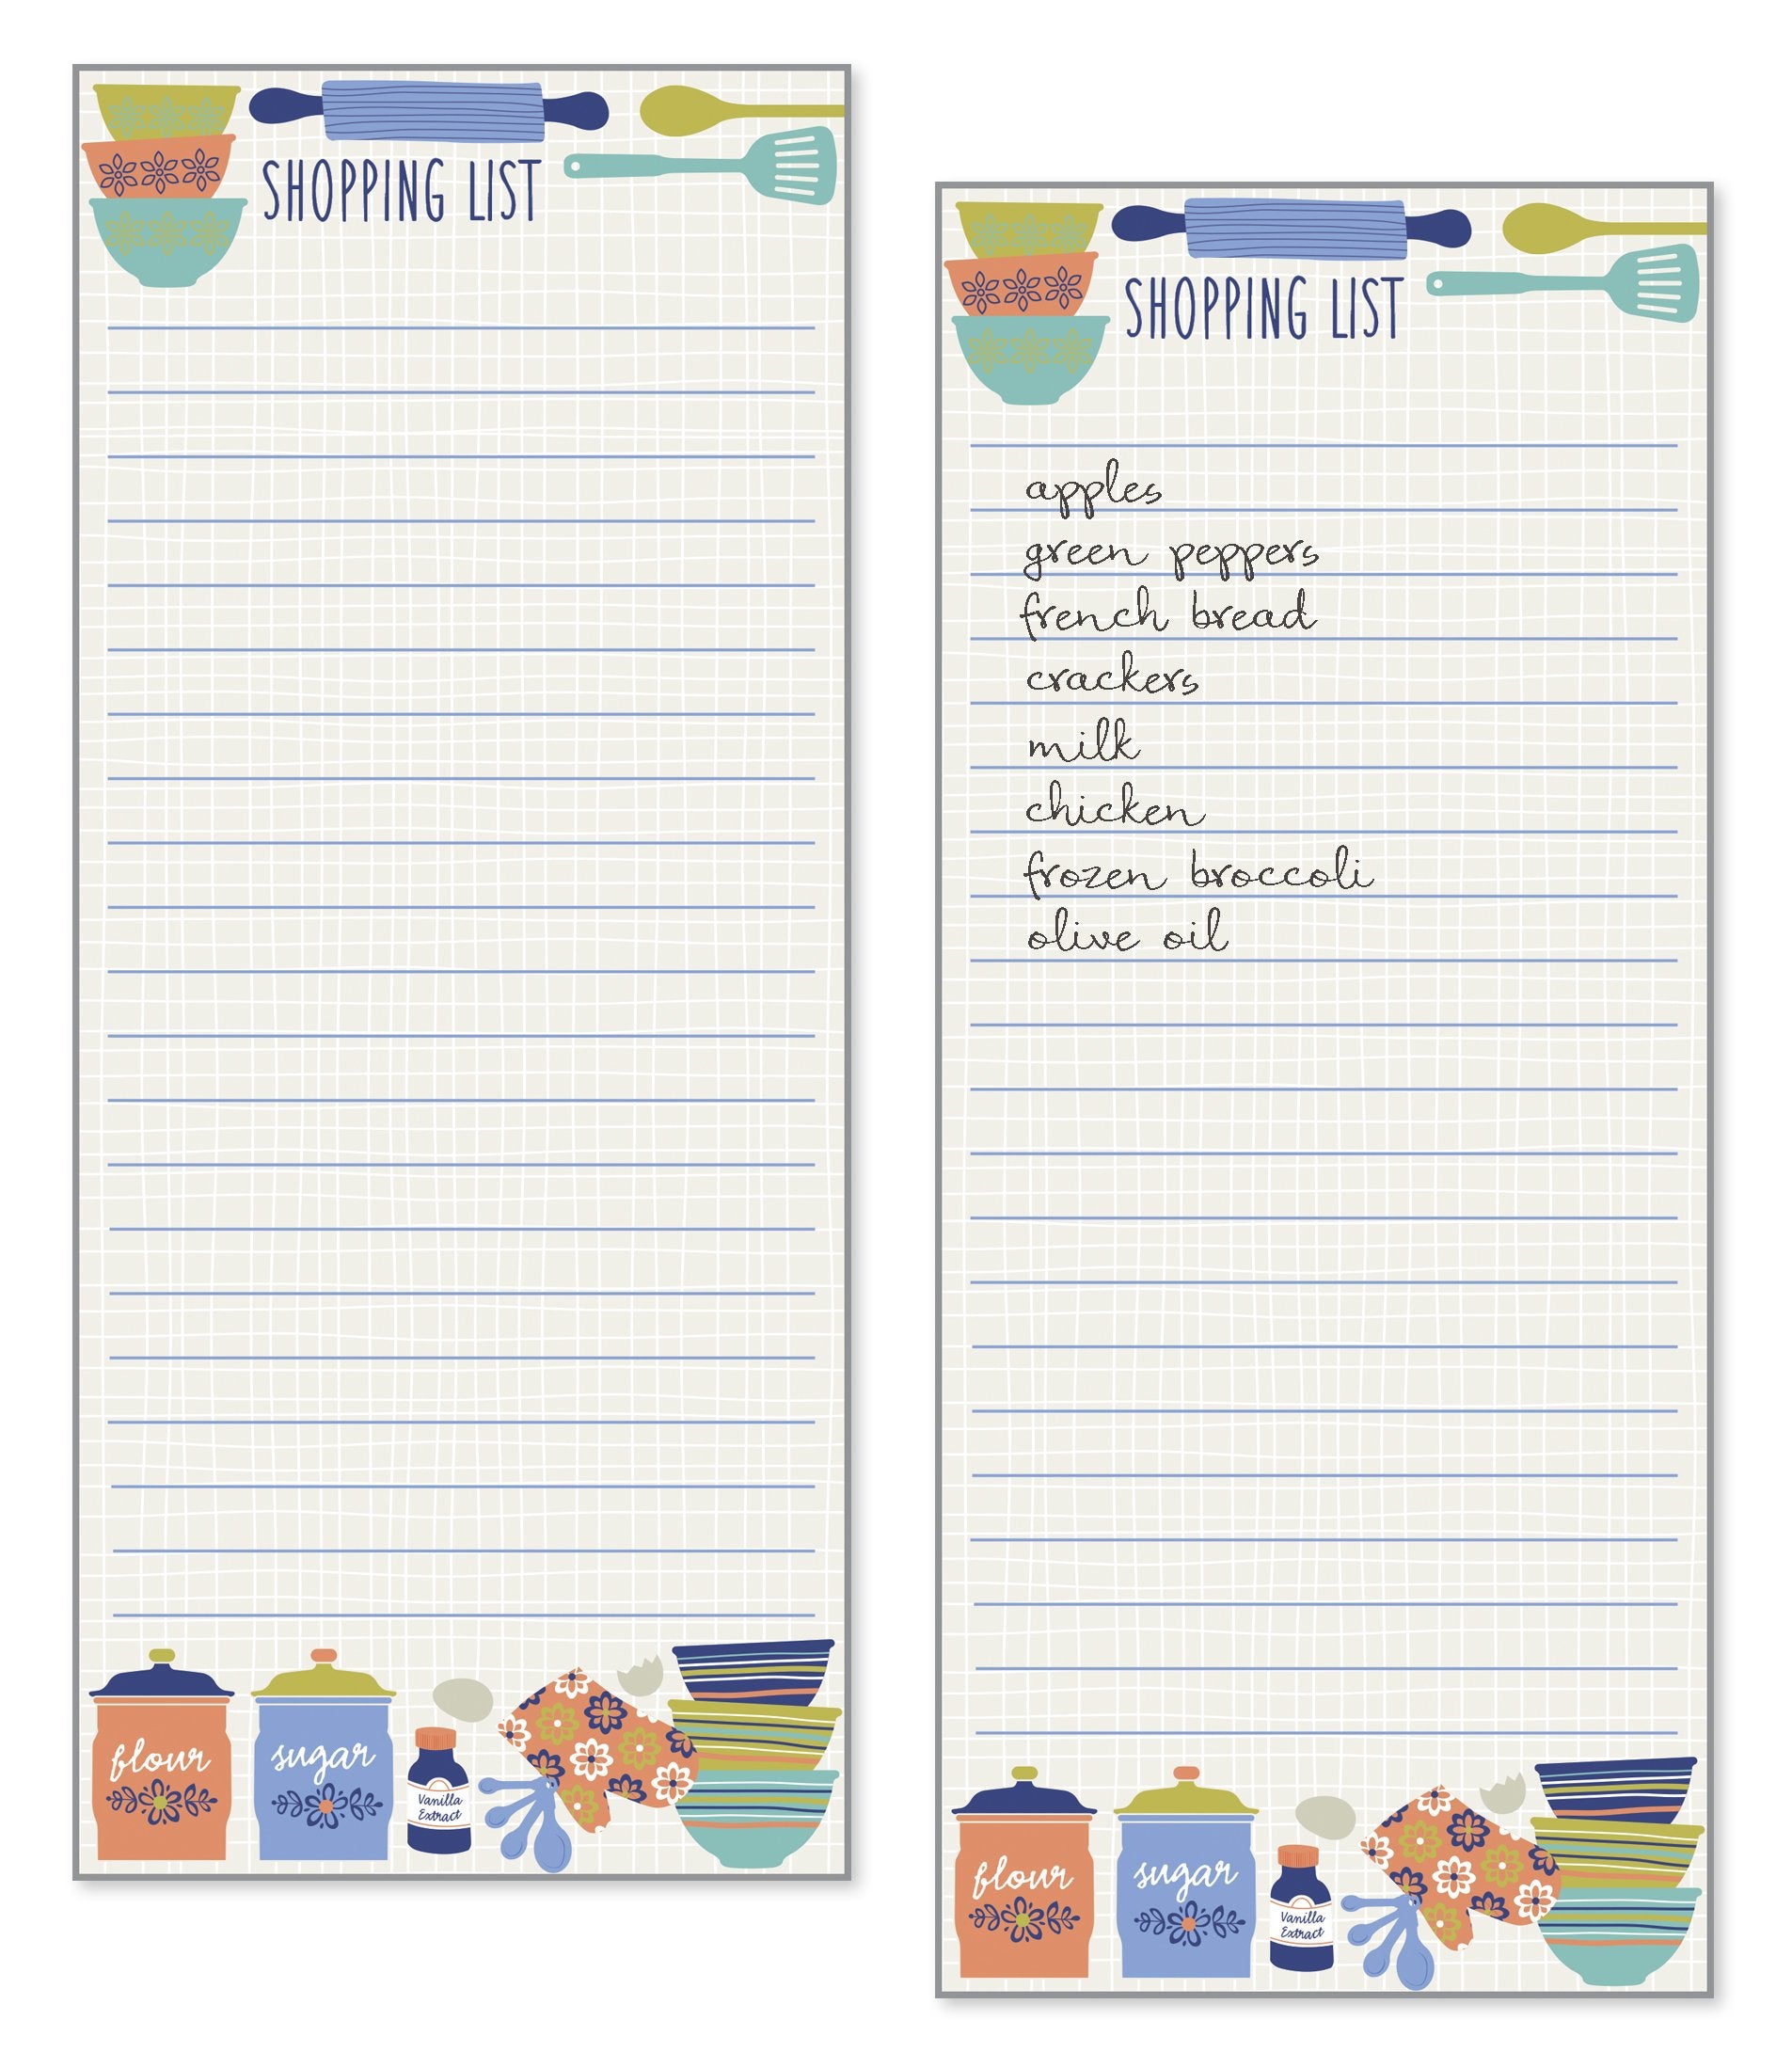 SHOPPING LIST
flour
sugar
Vanilla
Extract
SHOPPING LIST
apples
green peppers
french bread
crackers
milk
chicken
frozen broccoli
olive oil
flour
sugar
Vanilla
Extract